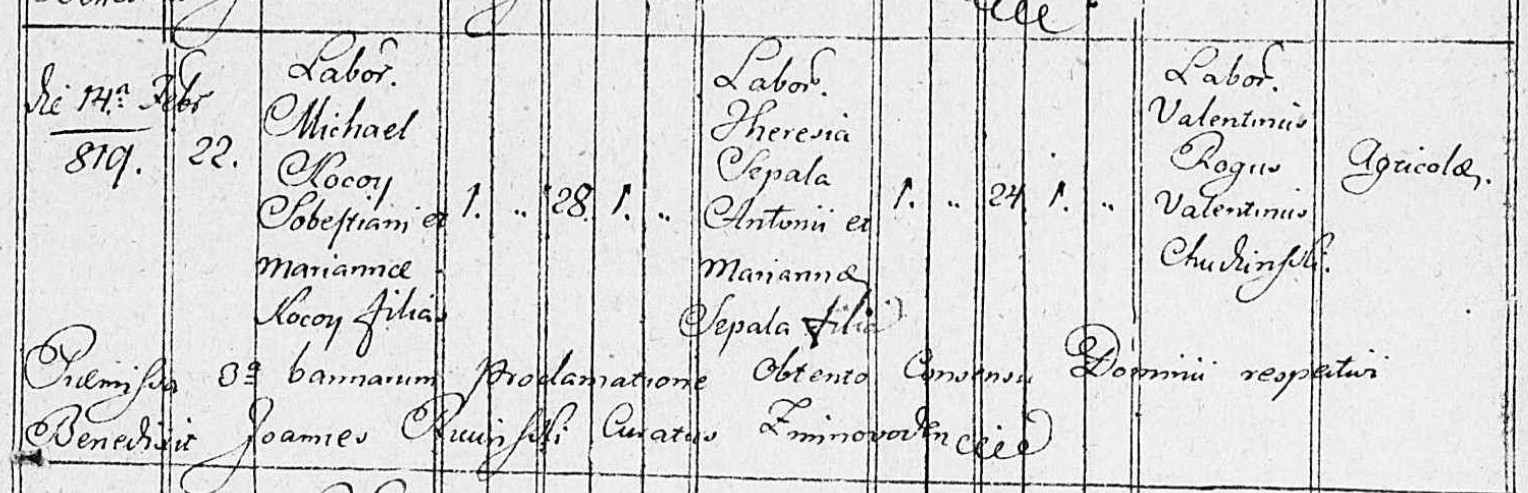 die 14ª Febr
819.
22.
Labor.
Michael
Kocoy
Sobestiani et
Mariannæ
Kocoy filius
1. „ 28. 1. „
Labor.
Theresia
Sepala
Antonii et
Mariannæ
Sepala filia
1. „ 24 1. „
Labor.
Valentinus
Rogus
Valentinus
Chudzinski.
Agricolæ.
Præmissa 3ª bannarum proclamatione obtento Consensu Dominii respectivi
Benedixit Joannes Curatus